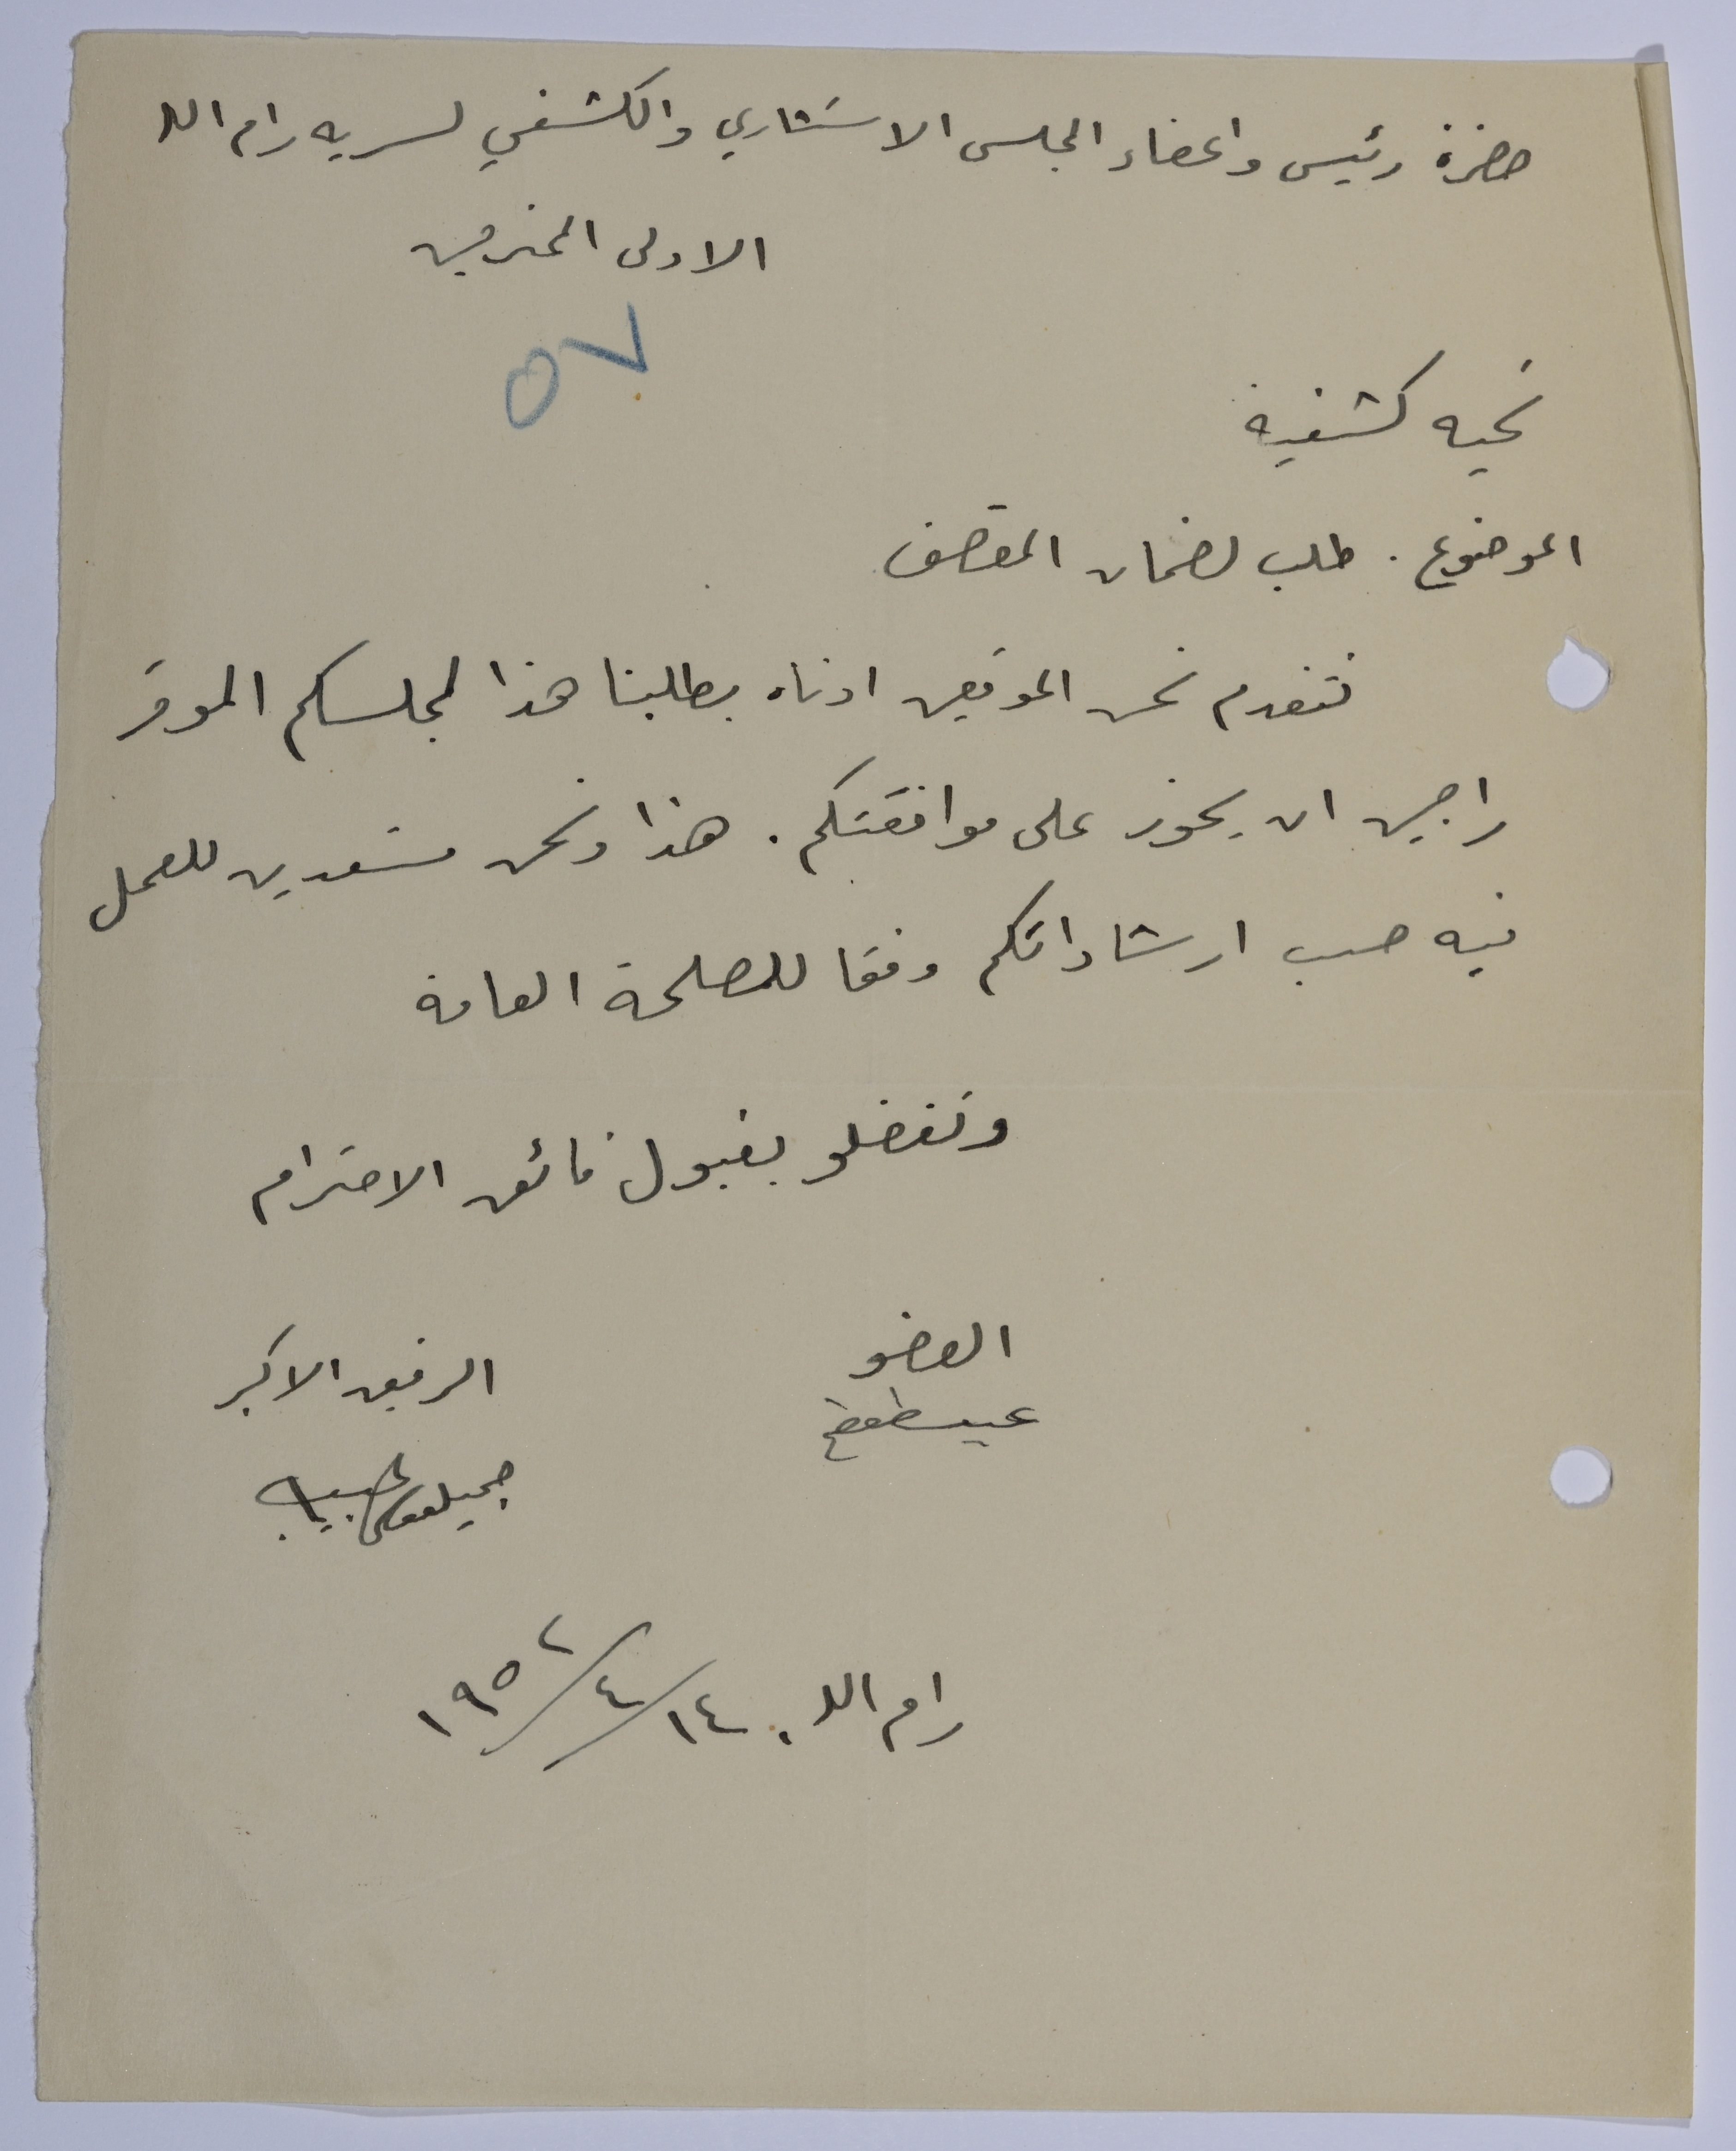 حضرة رئيس واعضاء المجلس الاستشاري والكشفي لسريه رام الله
الاولى المحترمين
٥٧
تحيه كشفية
الموضوع . طلب لضمان المقصف
نتقدم نحن الموقعين ادناه بطلبنا هذا لمجلسكم الموقر
راجين ان يحوز على موافقتكم . هذا ونحن مستعدين للعمل
فيه حسب ارشاداتكم وفقا للمصلحة العامة
وتفضلو بقبول فائق الاحترام
العضو
الرفيق الاكبر
جميل حبيب
رام الله . ١٤/٤/١٩٥٢